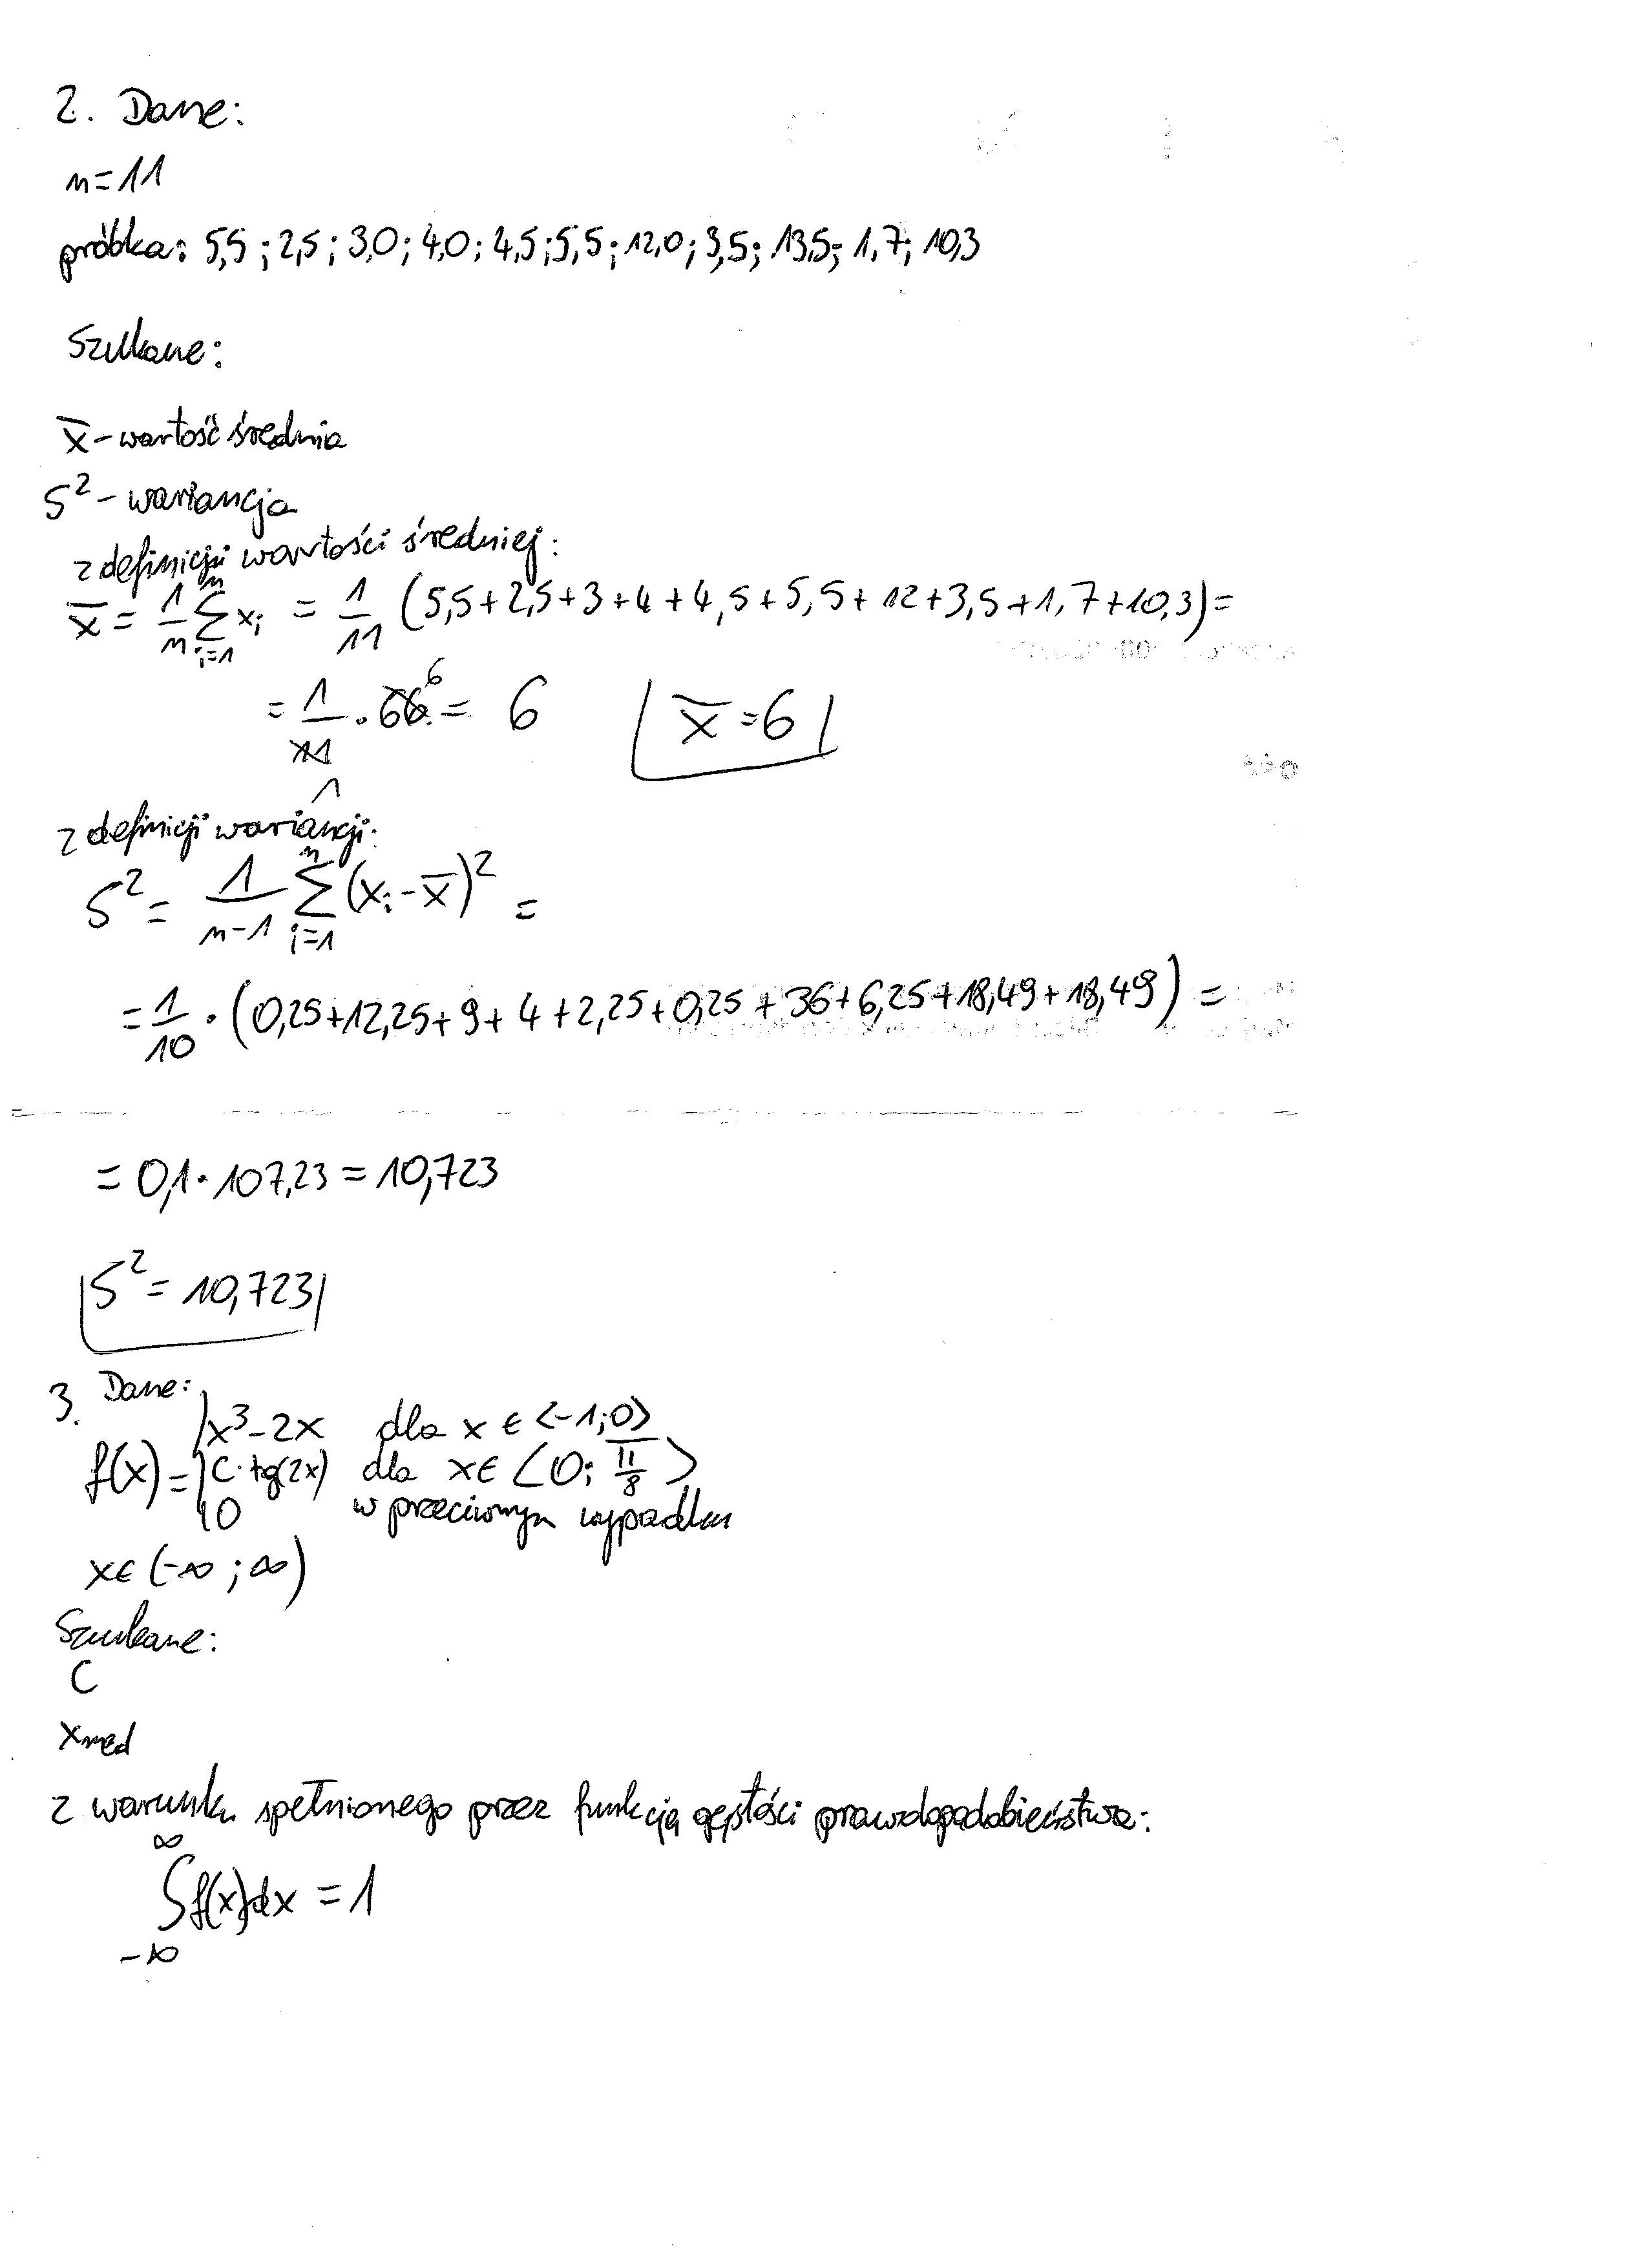 2. Dane:
n=11
próbka: 5,5 ; 2,5 ; 3,0 ; 4,0 ; 4,5 ; 5,5 ; 12,0 ; 3,5 ; 13,5 ; 1,7 ; 10,3
Szukane:
x̄ - wartość średnia
S² - wariancja
z definicji wartości średniej:
x̄ = 1/n ∑_{i=1}^{n} x_i = 1/11 (5,5+2,5+3+4+4,5+5,5+12+3,5+1,7+10,3) =
= 1/11 · 66 = 6   x̄ = 6
z definicji wariancji:
S² = 1/(n-1) ∑_{i=1}^{n} (x_i - x̄)² =
= 1/10 · (0,25+12,25+9+4+2,25+0,25+36+6,25+18,49+18,49) =
= 0,1 · 107,23 = 10,723
S² = 10,723
3. Dane:
x³-2x dla x ∈ <-1;0>
f(x) = { C·tg(2x) dla x ∈ <0; π/8>
0 w przeciwnym wypadku
x ∈ (-∞ ; ∞)
Szukane:
C
x_med
z warunku spełnionego przez funkcję gęstości prawdopodobieństwa:
∫_{-∞}^{∞} f(x)dx = 1